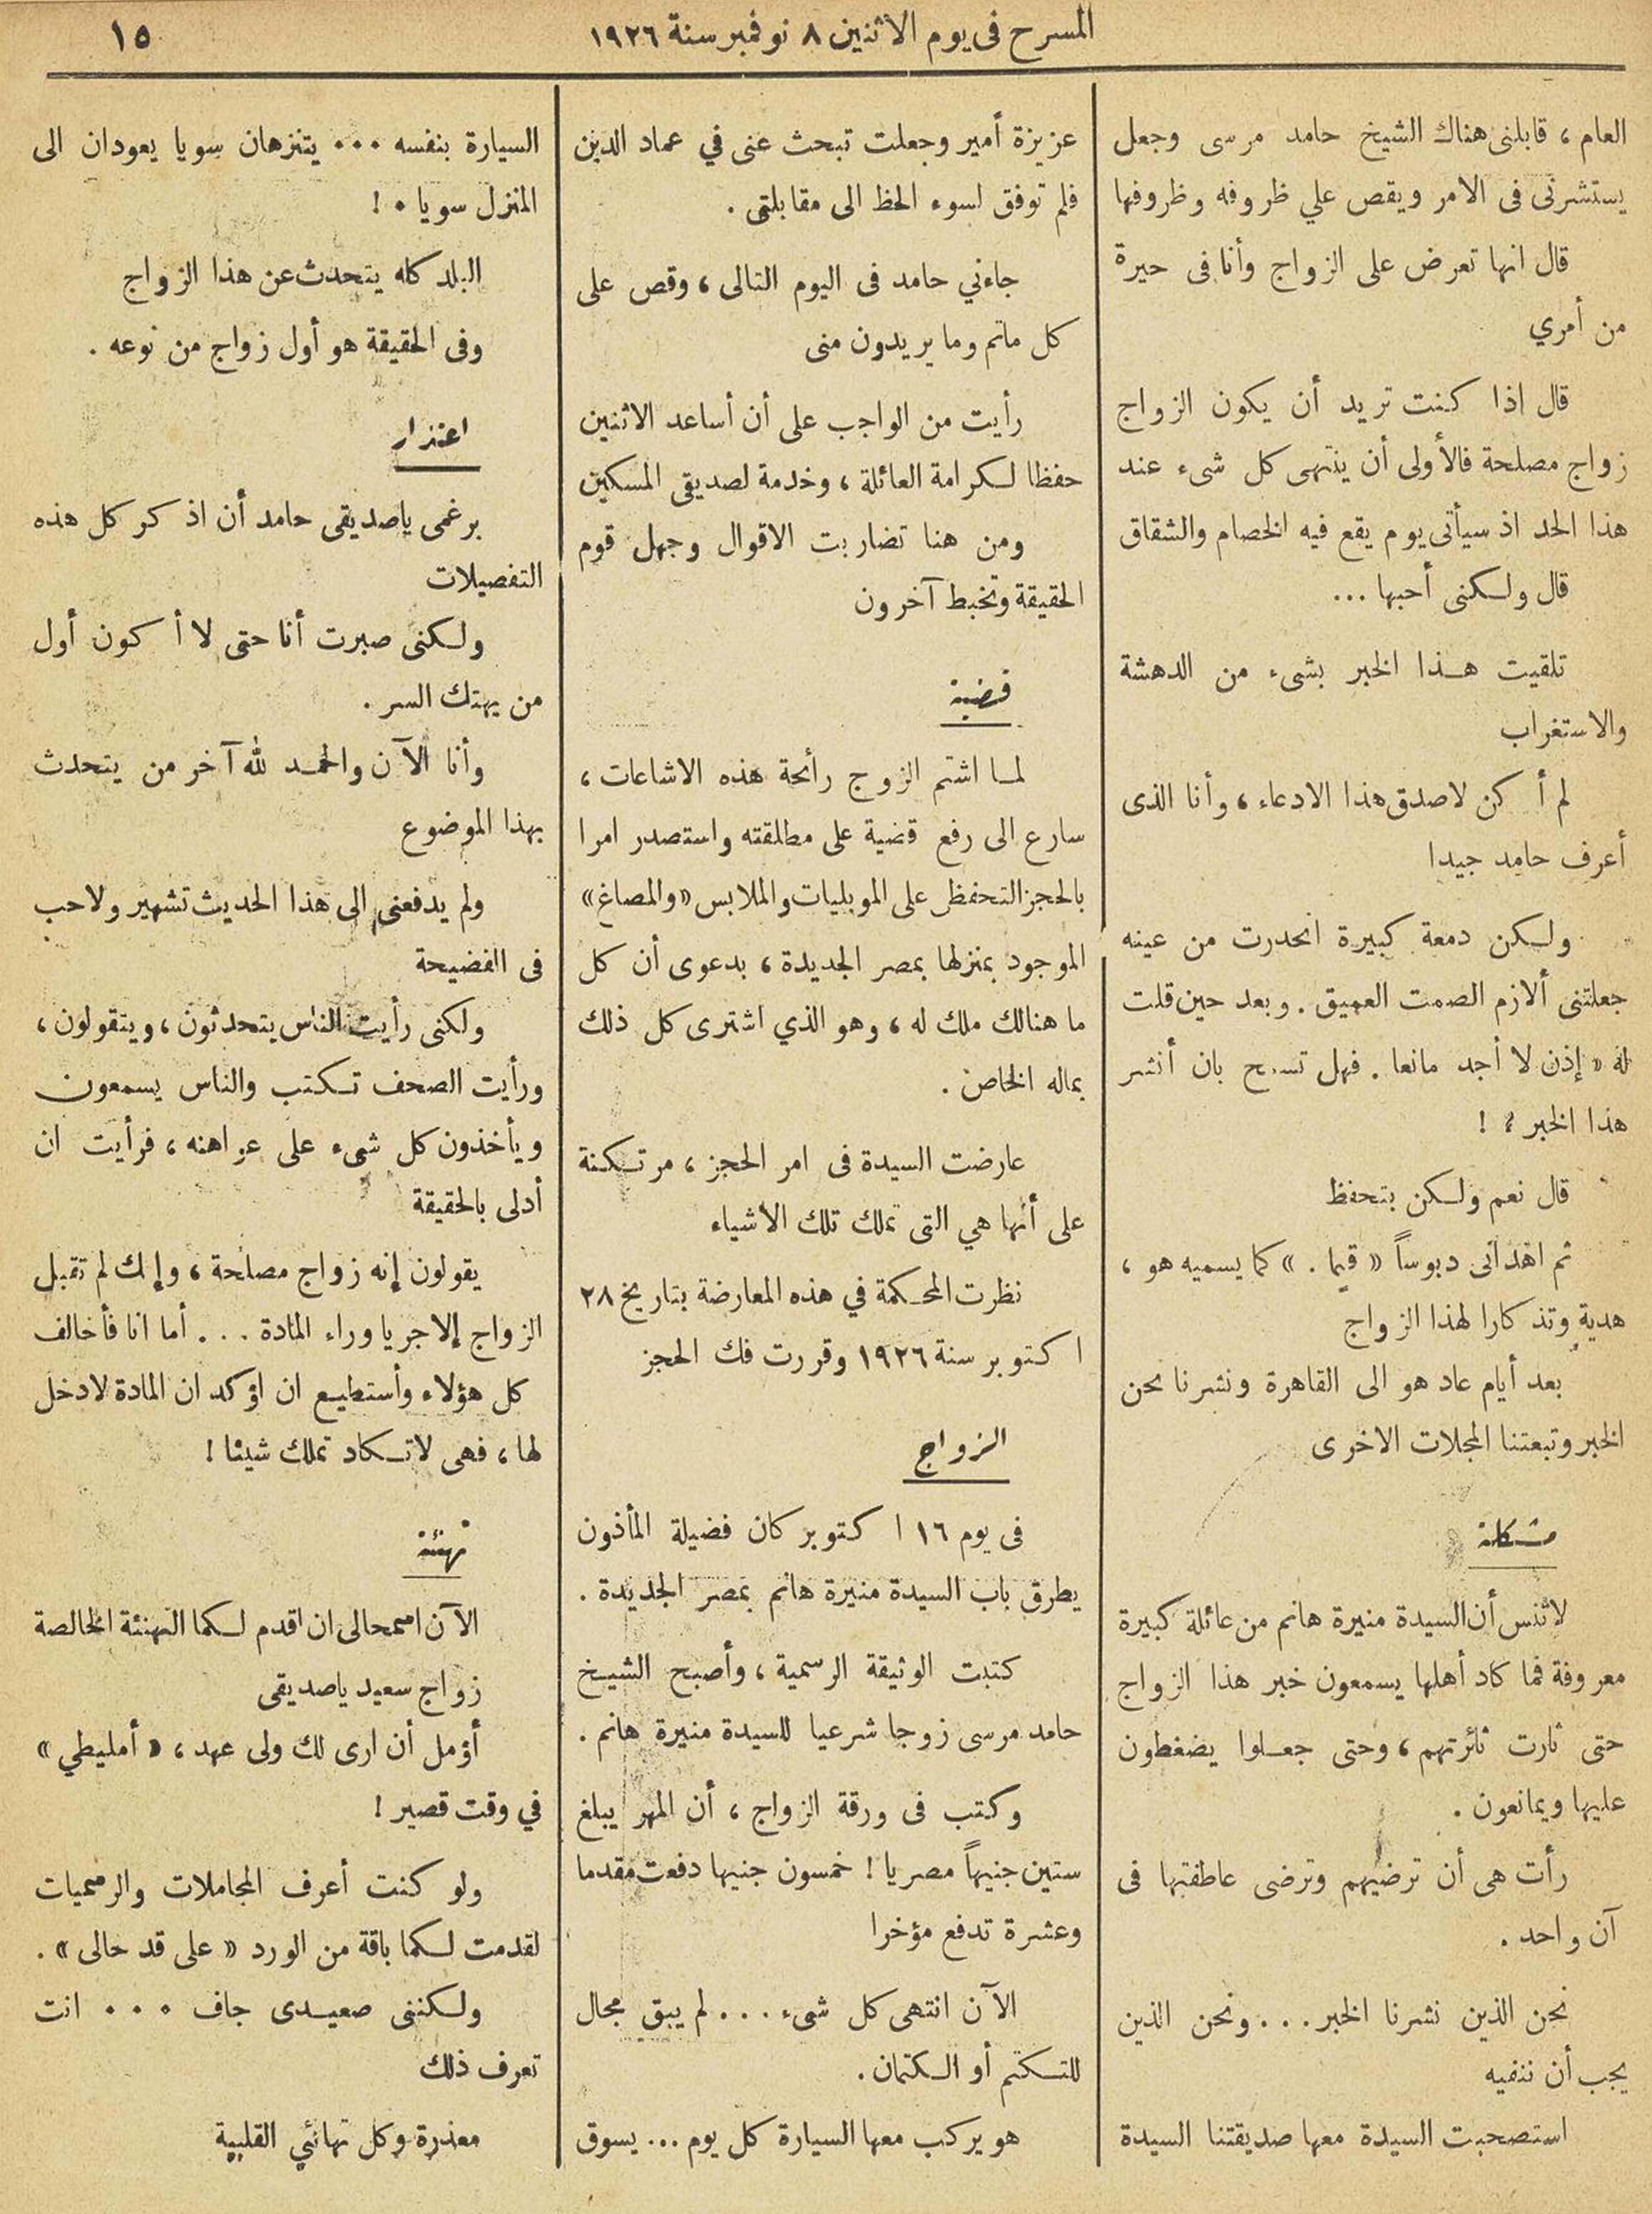 المسرح فى يوم الاثنين ٨ نوفمبر سنة ١٩٢٦
١٥
العام ، قابلنى هناك الشيخ حامد مرسى وجعل
يستشرنى فى الامر ويقص علي ظروفه وظروفها
قال انها تعرض على الزواج وأنا فى حيرة
من أمري
قال اذا كنت تريد أن يكون الزواج
زواج مصلحة فالأولى أن ينتهى كل شىء عند
هذا الحد اذ سيأتى يوم يقع فيه الخصام والشقاق
قال ولكنى أحبها ...
تلقيت هذا الخبر بشىء من الدهشة
والاستغراب
لم أكن لاصدق هذا الادعاء ، وأنا الذى
أعرف حامد جيدا
ولكن دمعة كبيرة انحدرت من عينه
جعلتنى ألازم الصمت العميق . وبعد حين قلت
له « إذن لا أجد مانعا . فهل تسمح بان أنشر
هذا الخبر ؟ !
قال نعم ولكن بتحفظ
ثم اهدانى دبوساً « قيما . » كما يسميه هو ،
هدية وتذكارا لهذا الزواج
بعد أيام عاد هو الى القاهرة ونشرنا نحن
الخبر وتبعتنا المجلات الاخرى
مشكلة
لاتنس أن السيدة منيرة هانم من عائلة كبيرة
معروفة فما كاد أهلها يسمعون خبر هذا الزواج
حتى ثارت ثائرتهم ، وحتى جعلوا يضغطون
عليها ويمانعون .
رأت هى أن ترضيهم وترضى عاطفتها فى
آن واحد .
نحن الذين نشرنا الخبر ... ونحن الذين
يجب أن ننفيه
استصحبت السيدة معها صديقتنا السيدة
عزيزة أمير وجعلت تبحث عنى في عماد الدين
فلم توفق لسوء الحظ الى مقابلتى .
جاءني حامد فى اليوم التالى ، وقص على
كل ماتم وما يريدون منى
رأيت من الواجب على أن أساعد الاثنين
حفظا لكرامة العائلة ، وخدمة لصديقى المسكين
ومن هنا تضاربت الاقوال وجهل قوم
الحقيقة وتخبط آخرون
قضية
لما اشتم الزوج رائحة هذه الاشاعات ،
سارع الى رفع قضية على مطلقته واستصدر امرا
بالحجز التحفظى على الموبليات والملابس « والمصاغ »
الموجود بمنزلها بمصر الجديدة ، بدعوى أن كل
ما هنالك ملك له ، وهو الذي اشترى كل ذلك
بماله الخاص .
عارضت السيدة فى امر الحجز ، مرتكنة
على أنها هي التى تملك تلك الاشياء
نظرت المحكمة في هذه المعارضة بتاريخ ٢٨
اكتوبر سنة ١٩٢٦ وقررت فك الحجز
الزواج
فى يوم ١٦ اكتوبر كان فضيلة المأذون
يطرق باب السيدة منيرة هانم بمصر الجديدة .
كتبت الوثيقة الرسمية ، وأصبح الشيخ
حامد مرسى زوجا شرعيا للسيدة منيرة هانم .
وكتب فى ورقة الزواج ، أن المهر يبلغ
ستين جنيهاً مصريا ! خمسون جنيها دفعت مقدما
وعشرة تدفع مؤخرا
الآن انتهى كل شىء ... لم يبق مجال
للتكتم أو الكتمان .
هو يركب معها السيارة كل يوم ... يسوق
السيارة بنفسه ... يتنزهان سويا يعودان الى
المنزل سويا . !
البلد كله يتحدث عن هذا الزواج
وفى الحقيقة هو أول زواج من نوعه .
اعتذار
برغمى ياصديقى حامد أن اذكر كل هذه
التفصيلات
ولكنى صبرت أنا حتى لا أكون أول
من يهتك السر .
وأنا الآن والحمد لله آخر من يتحدث
بهذا الموضوع
ولم يدفعنى الى هذا الحديث تشهير ولاحب
فى الفضيحة
ولكنى رأيت الناس يتحدثون ، ويتقولون ،
ورأيت الصحف تكتب والناس يسمعون
ويأخذون كل شىء على عواهنه ، فرأيت ان
أدلى بالحقيقة
يقولون إنه زواج مصلحة ، وإنك لم تقبل
الزواج إلا جريا وراء المادة ... أما انا فأخالف
كل هؤلاء وأستطيع ان اؤكد ان المادة لادخل
لها ، فهى لاتكاد تملك شيئا !
تهنئة
الآن اسمحالى ان اقدم لكما التهنئة الخالصة
زواج سعيد ياصديقى
أؤمل أن ارى لك ولى عهد ، « أمليطي »
في وقت قصير !
ولو كنت أعرف المجاملات والرسميات
لقدمت لكما باقة من الورد « على قد حالى » .
ولكننى صعيدى جاف ... انت
تعرف ذلك
معذرة وكل تهانئي القلبية